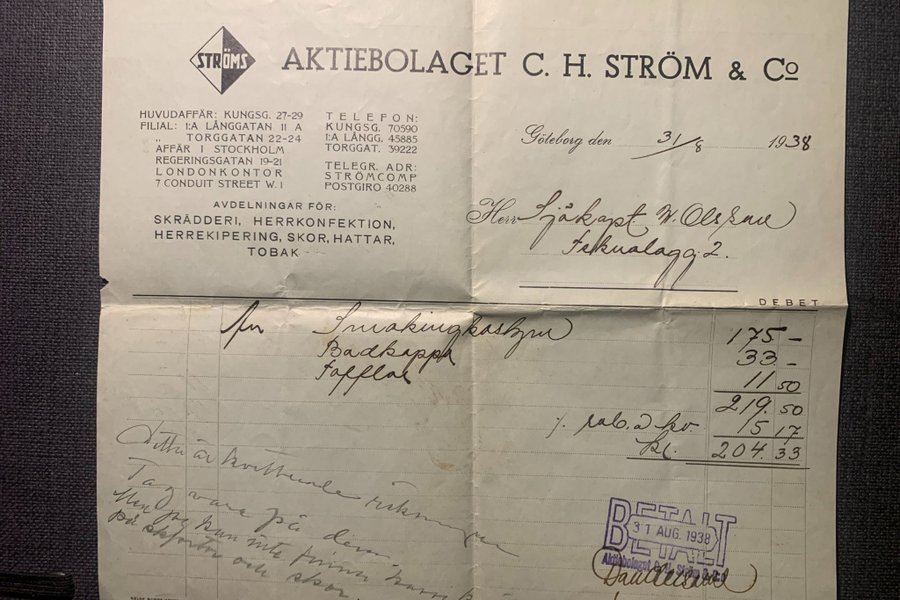 STRÖMS
AKTIEBOLAGET C. H. STRÖM & Co
HUVUDAFFÄR: KUNGSG. 27-29
FILIAL: 1:A LÅNGGATAN 11 A
„ TORGGATAN 22-24
AFFÄR I STOCKHOLM
REGERINGSGATAN 19-21
LONDONKONTOR
7 CONDUIT STREET W. 1
TELEFON:
KUNGSG. 70590
1:A LÅNGG. 45885
TORGGAT. 39222
TELEGR. ADR:
STRÖMCOMP
POSTGIRO 40288
AVDELNINGAR FÖR:
SKRÄDDERI, HERRKONFEKTION,
HERREKIPERING, SKOR, HATTAR,
TOBAK
Göteborg den 31/8 1938
Herr Sjökapt W. Olsson
DEBET
Smokingkostym 175 -
Badkappa 33 -
Tofflor 11 50
219. 50
rab. 15 17
Kr. 204. 33
Detta är kvitterade
Tag vara på dem
Men jag kan inte finna
på skjortor och skor
BETALT
31 AUG. 1938
BETALT
Aktiebolaget C. H. Ström & Co